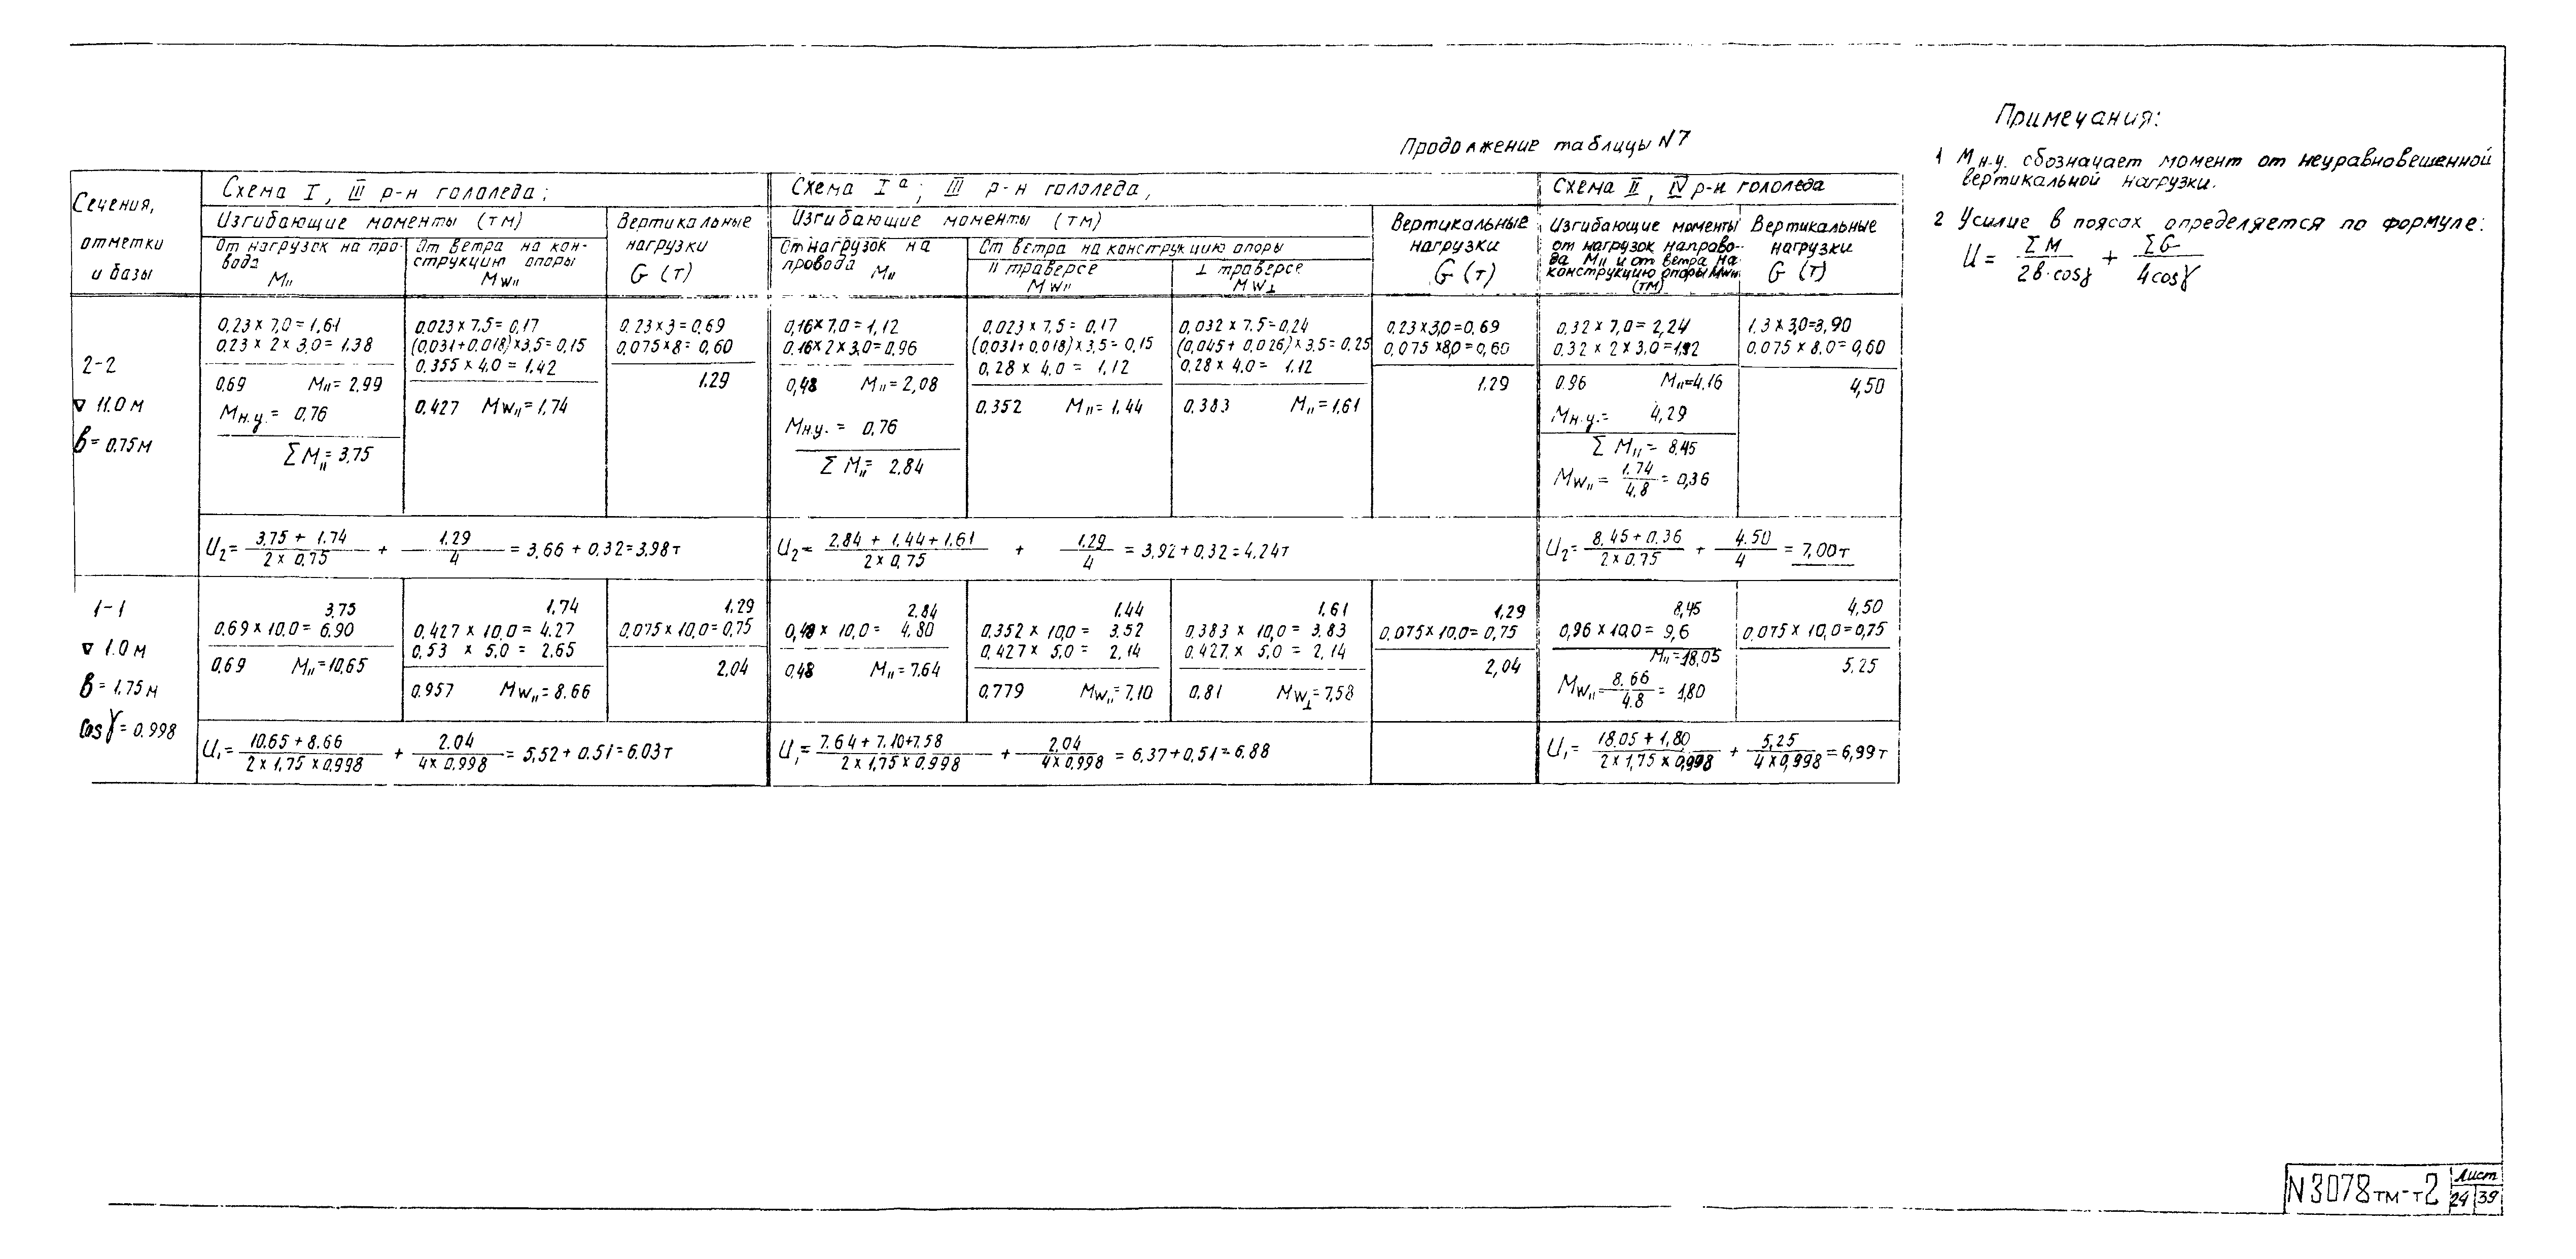 Продолжение таблицы N7
Сечения,
отметки
и базы
Схема I, III р-н гололеда;
Изгибающие моменты (тм)
От нагрузок на про-
вода
M॥
От ветра на кон-
струкцию опоры
MW॥
Вертикальные
нагрузки
G (т)
Схема Iа; III р-н гололеда,
Изгибающие моменты (тм)
От нагрузок на
провода M॥
От ветра на конструкцию опоры
॥ траверсе
MW॥
⊥ траверсе
MW⊥
Вертикальные
нагрузки
G (т)
Схема II, IV р-н гололеда
Изгибающие моменты
от нагрузок на прово-
да M॥ и от ветра на
конструкцию опоры MW॥
(тм)
Вертикальные
нагрузки
G (т)
2-2
∇ 11.0 м
b = 0.75 м
0.23 x 7,0 = 1,61
0.23 x 2 x 3,0 = 1.38
0.69 M॥ = 2.99
Mн.у. = 0,76
Σ M॥ = 3.75
0.023 x 7.5 = 0,17
(0,031+0.018) x 3,5 = 0,15
0.355 x 4,0 = 1,42
0.427 MW॥ = 1,74
0.23 x 3 = 0,69
0.075 x 8 = 0,60
1.29
0,16 x 7,0 = 1,12
0.16 x 2 x 3,0 = 0,96
0,48 M॥ = 2,08
Mн.у. = 0,76
Σ M॥ = 2.84
0,023 x 7,5 = 0,17
(0,031+0,018) x 3,5 = 0,15
0,28 x 4,0 = 1,12
0.352 M॥ = 1,44
0,032 x 7.5 = 0,24
(0,045 + 0,026) x 3.5 = 0,25
0,28 x 4,0 = 1,12
0.383 M॥ = 1,61
0.23 x 3,0 = 0,69
0,075 x 8,0 = 0,60
1.29
0.32 x 7,0 = 2,24
0.32 x 2 x 3.0 = 1,92
0.96 M॥ = 4,16
Mн.у. = 4,29
Σ M॥ = 8.45
MW॥ = 1,74 / 4.8 = 0,36
1.3 x 3,0 = 3,90
0.075 x 8.0 = 0,60
4,50
U2 = 3.75 + 1.74 / 2 x 0.75 + 1.29 / 4 = 3,66 + 0.32 = 3.98 т
U2 = 2.84 + 1,44 + 1,61 / 2 x 0,75 + 1,29 / 4 = 3,92 + 0,32 = 4.24 т
U2 = 8,45 + 0,36 / 2 x 0.75 + 4.50 / 4 = 7,00 т
1-1
∇ 1.0 м
b = 1,75 м
cos γ = 0.998
3,75
0.69 x 10,0 = 6.90
0.69 M॥ = 10,65
1,74
0,427 x 10,0 = 4.27
0,53 x 5,0 = 2.65
0.957 MW॥ = 8.66
1.29
0,075 x 10,0 = 0,75
2,04
2,84
0,48 x 10,0 = 4.80
0,48 M॥ = 7.64
1.44
0.352 x 10,0 = 3.52
0.427 x 5,0 = 2,14
0.779 MW॥ = 7,10
1,61
0.383 x 10,0 = 3.83
0.427. x 5,0 = 2,14
0.81 MW⊥ = 7,58
1,29
0.075 x 10,0 = 0,75
2,04
8,45
0,96 x 10,0 = 9,6
M॥ = 18,05
MW॥ = 8.66 / 4.8 = 1,80
4,50
0.075 x 10,0 = 0,75
5,25
U1 = 10.65 + 8.66 / 2 x 1,75 x 0.998 + 2.04 / 4 x 0.998 = 5,52 + 0.51 = 6.03 т
U1 = 7.64 + 7,10 + 7.58 / 2 x 1,75 x 0,998 + 2,04 / 4 x 0,998 = 6,37 + 0,51 = 6,88
U1 = 18.05 + 1,80 / 2 x 1,75 x 0,998 + 5,25 / 4 x 0,998 = 6,99 т
Примечания:
1 Mн.у. обозначает момент от неуравновешенной
вертикальной нагрузки.
2 Усилие в поясах определяется по формуле:
U = Σ M / 2b · cosγ + Σ G / 4 cosγ
N3078тм-т2
Лист
24 39